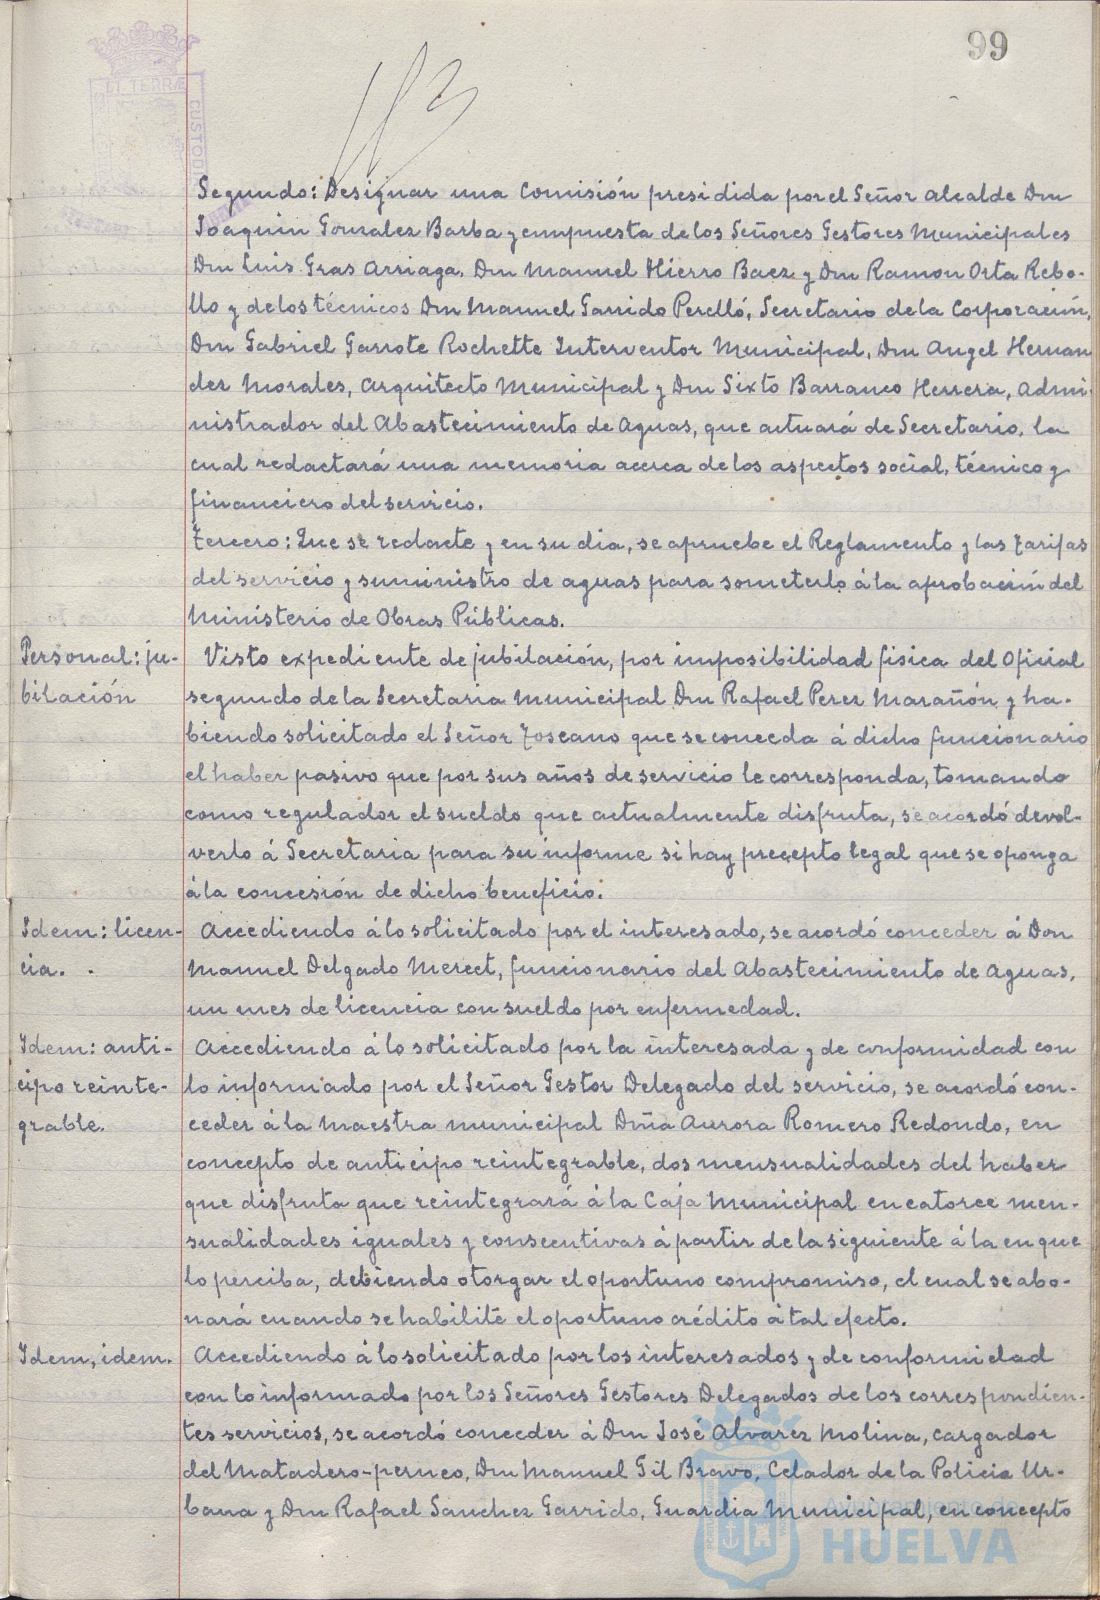 99
ET TERRÆ
CUSTODI
Segundo: Designar una Comisión presidida por el Señor Alcalde Don
Joaquin Gonzalez Barba y compuesta de los Señores Gestores Municipales
Don Luis Gras Arriaga, Don Manuel Hierro Baez y Don Ramon Orta Rebo-
llo y de los técnicos Don Manuel Garrido Perelló, Secretario de la Corporación,
Don Gabriel Garrote Rochette Interventor Municipal, Don Angel Hernan
dez Morales, Arquitecto Municipal y Don Sixto Barranco Herrera, Admi-
nistrador del Abastecimiento de Aguas, que actuará de Secretario, la
cual redactará una memoria acerca de los aspectos social, técnico y
financiero del servicio.
Tercero: Que se redacte y en su dia, se apruebe el Reglamento y las Tarifas
del servicio y suministro de aguas para someterlo á la aprobación del
Ministerio de Obras Públicas.
Personal: ju-
bilación
Visto expediente de jubilación, por imposibilidad fisica del Oficial
segundo de la Secretaria Municipal Don Rafael Perez Marañón y ha-
biendo solicitado el Señor Toscano que se conceda á dicho funcionario
el haber pasivo que por sus años de servicio le corresponda, tomando
como regulador el sueldo que actualmente disfruta, se acordó devol-
verlo á Secretaria para su informe si hay precepto legal que se oponga
á la concesión de dicho beneficio.
Idem: licen-
cia.
Accediendo á lo solicitado por el interesado, se acordó conceder á Don
Manuel Delgado Merect, funcionario del Abastecimiento de Aguas,
un mes de licencia con sueldo por enfermedad.
Idem: anti-
cipo reinte-
grable.
Accediendo á lo solicitado por la interesada y de conformidad con
lo informado por el Señor Gestor Delegado del servicio, se acordó con-
ceder á la maestra municipal Dña Aurora Romero Redondo, en
concepto de anticipo reintegrable, dos mensualidades del haber
que disfruta que reintegrará á la Caja Municipal en catorce men-
sualidades iguales y consecutivas á partir de la siguiente á la en que
lo perciba, debiendo otorgar el oportuno compromiso, el cual se abo-
nará cuando se habilite el oportuno crédito á tal efecto.
Idem, idem.
Accediendo á lo solicitado por los interesados y de conformidad
con lo informado por los Señores Gestores Delegados de los correspondien-
tes servicios, se acordó conceder á Don José Alvarez Molina, cargador
del Matadero-perneo, Don Manuel Gil Bravo, Celador de la Policia Ur-
bana y Don Rafael Sanchez Garrido, Guardia Municipal, en concepto
Ayuntamiento de
HUELVA